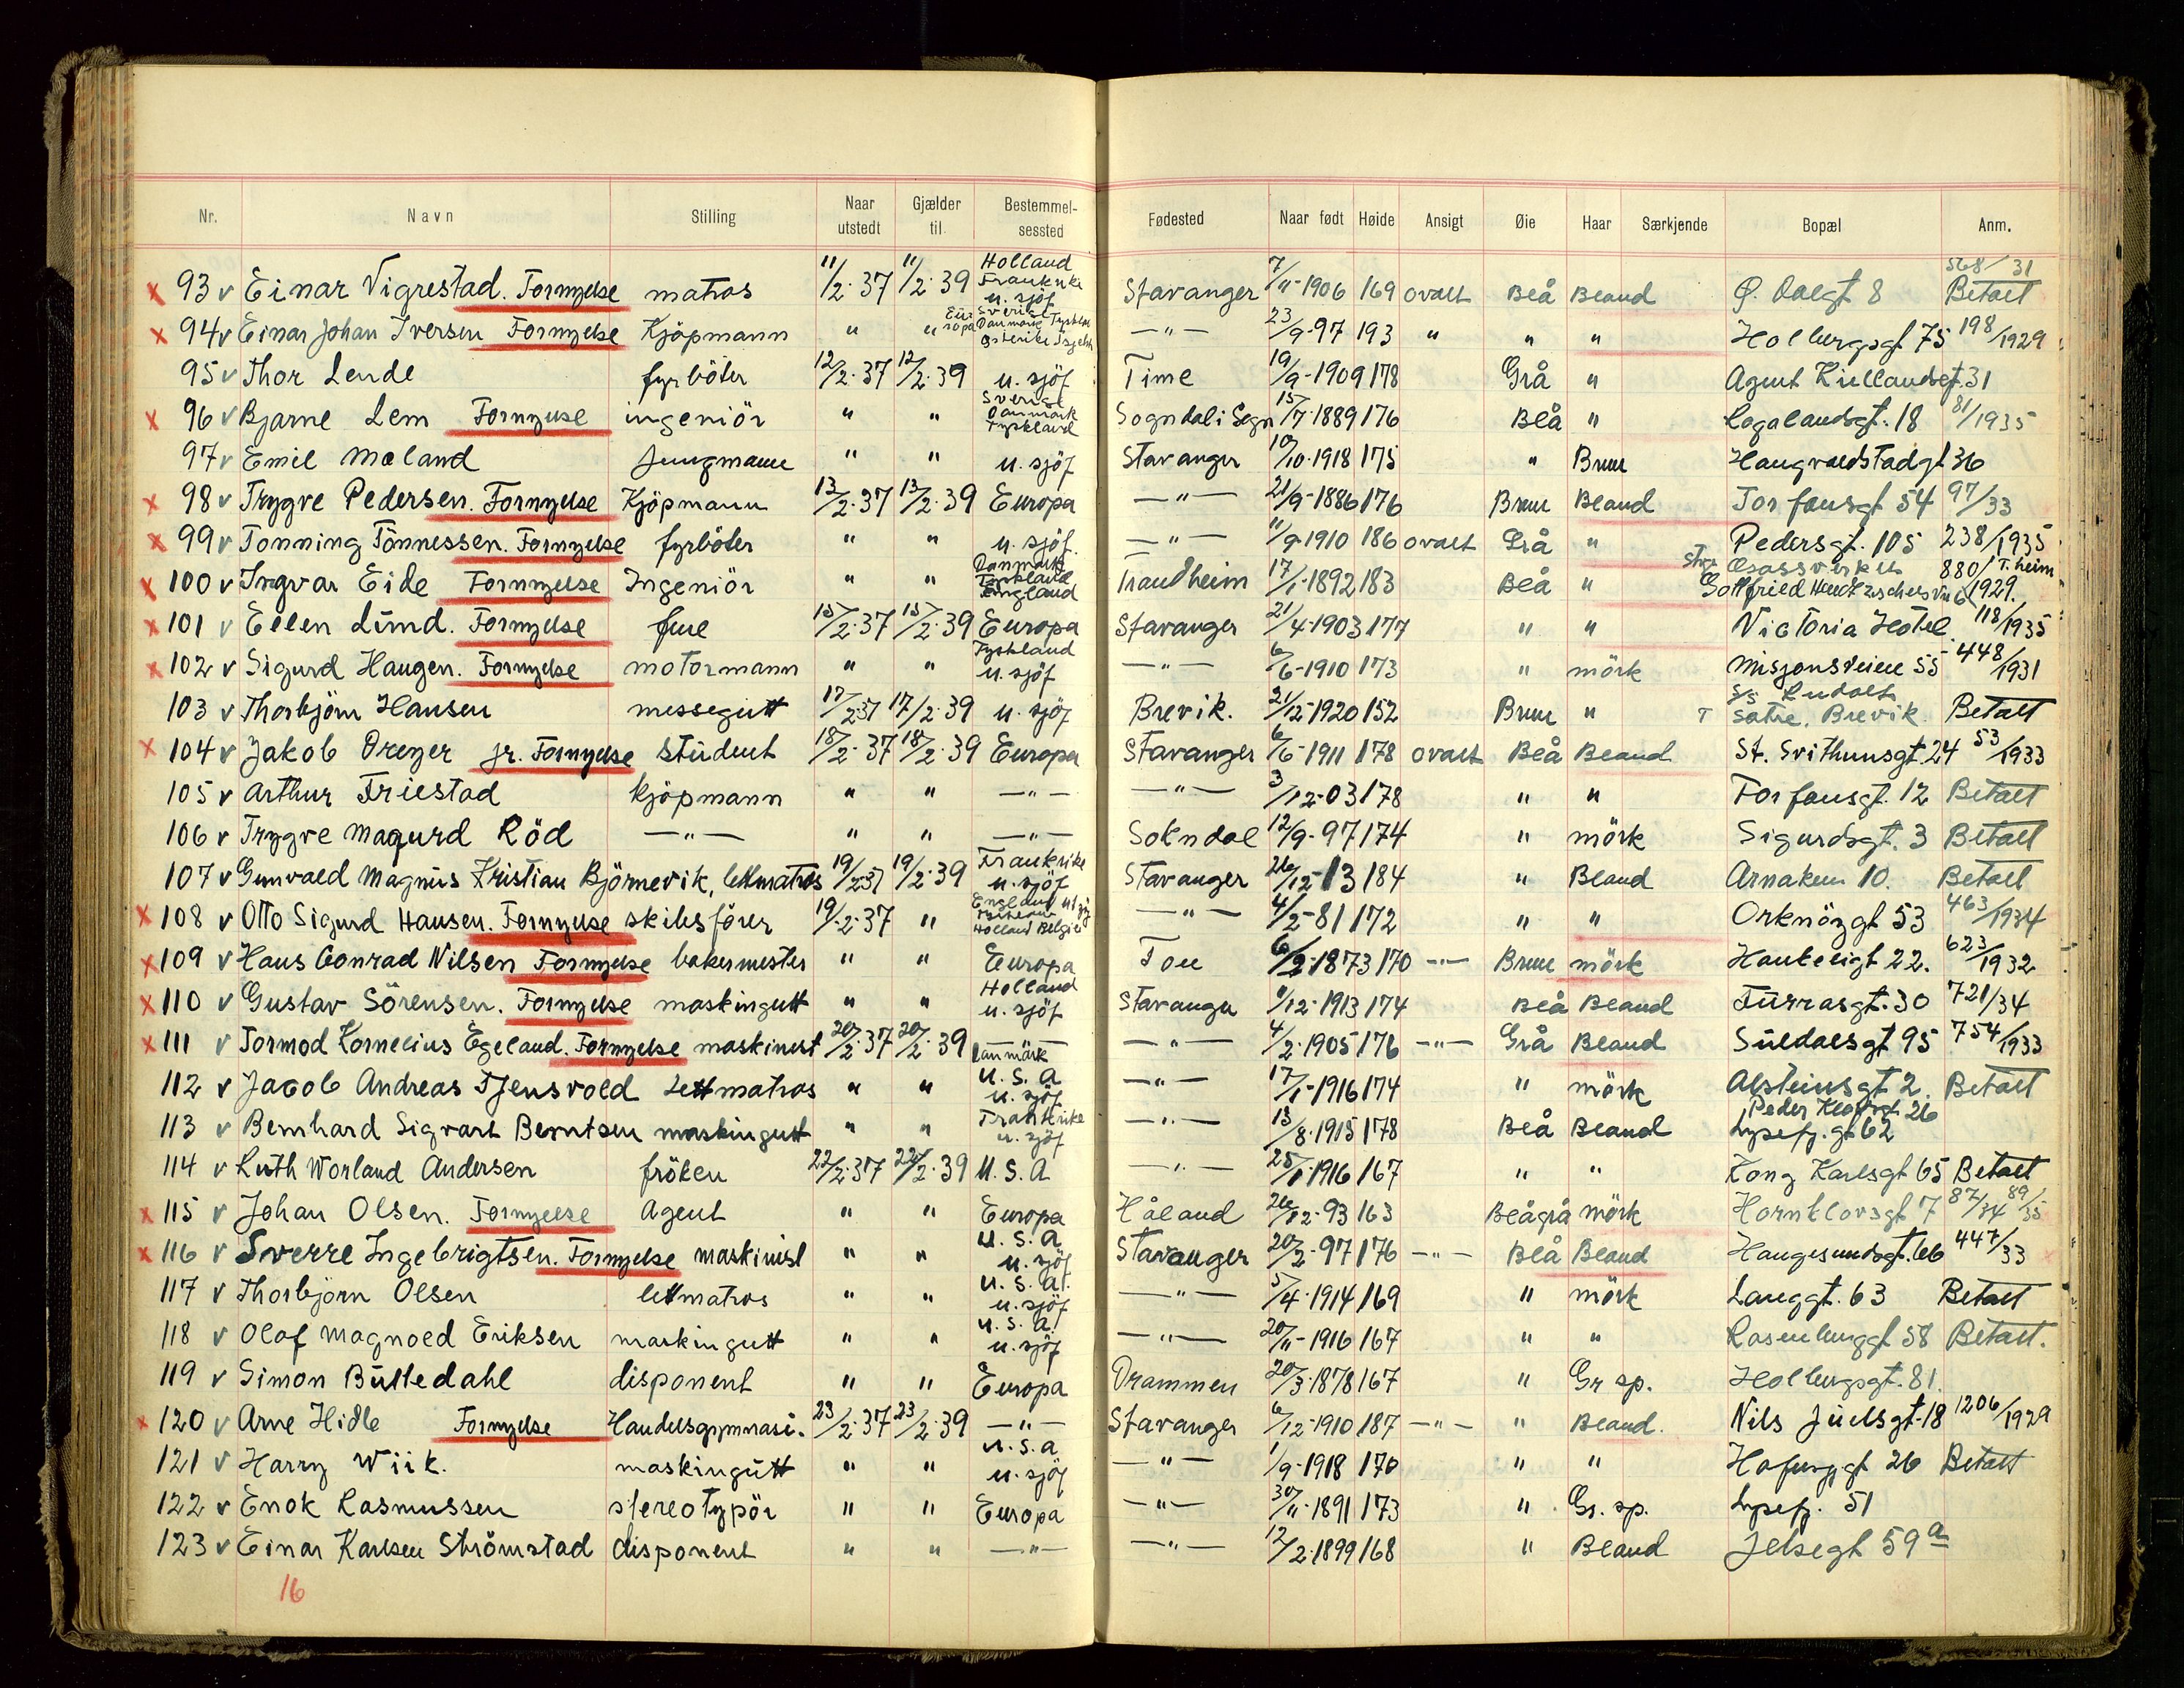 Nr. Navn Stilling Naar utstedt Gjælder til Bestemmelsessted Fødested Naar født Høide Ansigt Øie Haar Særkjende Bopæl Anm.
x 93 v Einar Vigrestad. Fornyelse matros 11/2-37 11/2-39 Holland Frankrike u. sjöf Stavanger 7/11-1906 169 ovalt Blå Bland Ø. Dalgt 8 568/31 Betalt
x 94 v Einar Johan Iversen Fornyelse Kjöpmann " " Europa Sverige Danmark Tyskland —"— 23/9-97 193 " " " Holbergsgt 75 198/1929
95 v Thor Lende fyrböter 12/2-37 12/2-39 u. sjöf Time 19/9-1909 178 Grå " Agent Kiellandsgt. 31
x 96 v Bjarne Lem Fornyelse ingeniör " " Sverige Danmark Tyskland Sogndal i Sogn 15/7-1889 176 Blå " Rogalandsgt. 18 81/1935
97 v Emil Moland Jungmann " " u. sjöf Stavanger 10/10-1918 175 " Brun Haugvaldstadgt 36
x 98 v Trygve Pedersen. Fornyelse Kjöpmann 13/2-37 13/2-39 Europa —"— 21/9-1886 176 Brun Bland Torfæusgt 54 97/33
x 99 v Tonning Tönnessen. Fornyelse fyrböter " " u. sjöf. —"— 11/9-1910 186 ovalt Grå " Pedersgt. 105 238/1935
x 100 v Ingvar Eide Fornyelse Ingeniör " " Danmark Tyskland England Trondheim 17/1-1892 183 Blå " 880/T.heim 1929.
x 101 v Ellen Lund. Fornyelse frue 15/2-37 15/2-39 Europa Stavanger 21/4-1903 177 " " Victoria Hotel 118/1935
x 102 v Sigurd Haugen. Fornyelse motormann " " Tyskland u. sjöf —"— 6/6-1910 173 " mörk Misjonsveien 55 448/1931
103 v Thorbjörn Hansen messegutt 17/2-37 17/2-39 u. sjöf Brevik. 21/12-1920 152 Brun " S/S Rudolf Sätre, Brevik Betalt
x 104 v Jakob Dreyer jr. Fornyelse student 18/2-37 18/2-39 Europa Stavanger 6/6-1911 178 ovalt Blå Bland St. Svithunsgt. 24 53/1933
105 v Arthur Friestad kjöpmann " " —"— —"— 3/12-03 178 " " Torfæusgt. 12 Betalt
106 v Trygve Magurd Röd —"— " " —"— Sokndal 12/9-97 174 " mörk Sigurdsgt. 3 Betalt
107 v Gunvald Magnus Kristian Björnevik, lettmatros 19/2-37 19/2-39 Frankrike u. sjöf Stavanger 26/12-13 184 " Bland Arnaken 10. Betalt
x 108 v Otto Sigurd Hansen. Fornyelse skibsförer 19/2-37 " England Holland Belgien —"— 4/2-81 172 " " Orknöygt 53 463/1934
x 109 v Hans Conrad Nilsen Fornyelse bakermester " " Europa Tou 6/2-1873 170 —"— Brun mörk Haukeligt 22. 623/1932
x 110 v Gustav Sörensen. Fornyelse maskingutt " " Holland u. sjöf Stavanger 9/12-1913 174 Blå Bland Turrasgt. 30 721/34
x 111 v Tormod Kornelius Egeland. Fornyelse maskinist 20/2-37 20/2-39 Danmark —"— 4/2-1905 176 —"— Grå Bland Suldalsgt 95 754/1933
112 v Jacob Andreas Tjensvold Lettmatros " " U.S.A u. sjöf —"— 17/1-1916 174 " mörk Alsteinsgt 2. Betalt
113 v Bernhard Sigvart Berntsen maskingutt " " Frankrike u. sjöf —"— 13/8-1915 178 Blå Bland Peder Klowsgt 26 Lysefj. gt 62
114 v Ruth Worland Andersen fröken 22/2-37 22/2-39 U.S.A —"— 25/1-1916 167 " " Kong Karlsgt 65 Betalt
x 115 v Johan Olsen. Fornyelse Agent " " Europa Håland 26/12-93 163 Blågrå mörk Hornklovsgt 7 87/34 89/35
x 116 v Sverre Ingebrigtsen. Fornyelse maskinist " " U.S.A u. sjöf Stavanger 20/2-97 176 —"— Blå Bland Haugesundsgt. 66 447/33
117 v Thorbjörn Olsen lettmatros " " U.S.A. u. sjöf —"— 5/4-1914 169 " mörk Langgt. 63 Betalt
118 v Olaf Magnold Eriksen maskingutt " " U.S.A. u. sjöf —"— 20/11-1916 167 " " Rosenberggt 58 Betalt.
119 v Simon Bulledahl disponent " " Europa Drammen 20/3-1878 167 " Gr sp. Holbergsgt. 81.
x 120 v Arne Hidle Fornyelse Handelsgymnasi. 23/2-37 23/2-39 —"— Stavanger 6/12-1910 187 —"— " Bland. Nils Juelsgt. 18 1206/1929
121 v Harry Wiik. maskingutt " " U.S.A u. sjöf —"— 1/9-1918 170 " " 26 Betalt
122 v Enok Rasmussen stereotypör " " Europa —"— 30/11-1891 173 " Gr. sp. Lysefj. 51
123 v Einar Karlsen Strömstad disponent " " —"— —"— 12/2-1899 168 " Bland Jelsegt 59 a
16